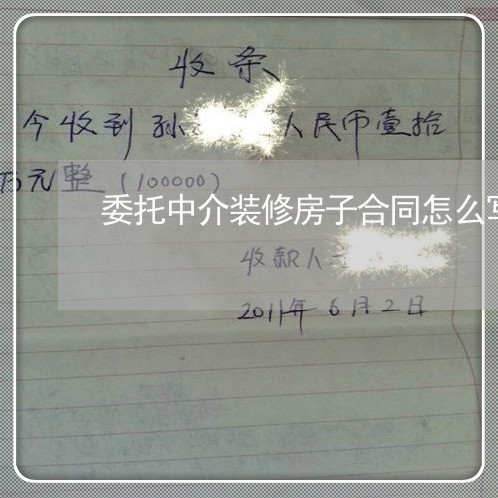 收条
今收到孙 人民币壹拾
万元整(100000)
委托中介装修房子合同怎么写
收款人
2011年6月2日